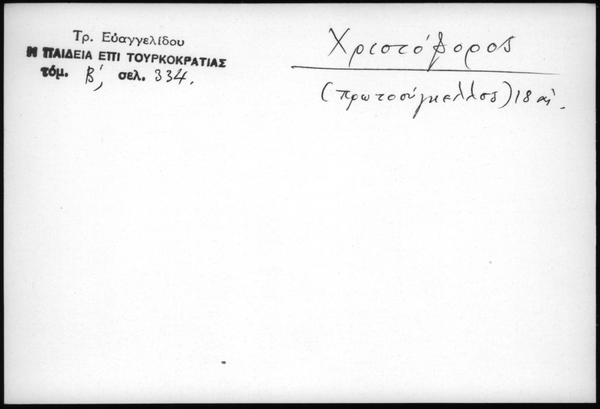 Τρ. Εὐαγγελίδου
Η ΠΑΙΔΕΙΑ ΕΠΙ ΤΟΥΡΚΟΚΡΑΤΙΑΣ
τόμ. Β', σελ. 334.
Χριστόφορος
(πρωτοσύγκελλος) 18 αἰ.